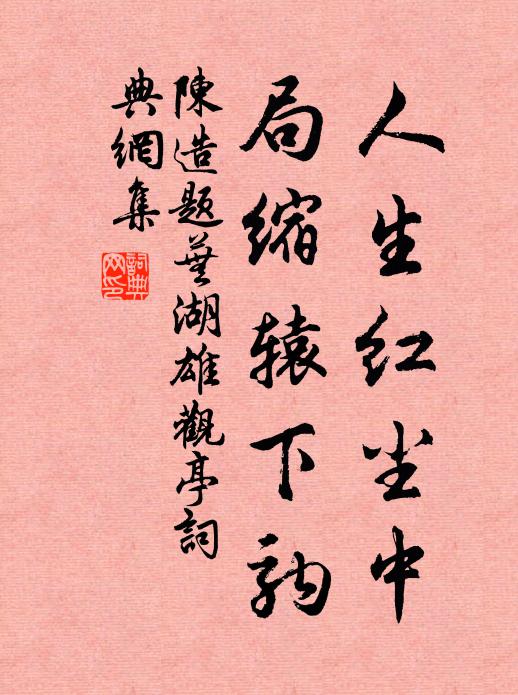 人生红尘中
局缩辕下駒
陳造題蕪湖雄觀亭詞
典網集
詞典网印